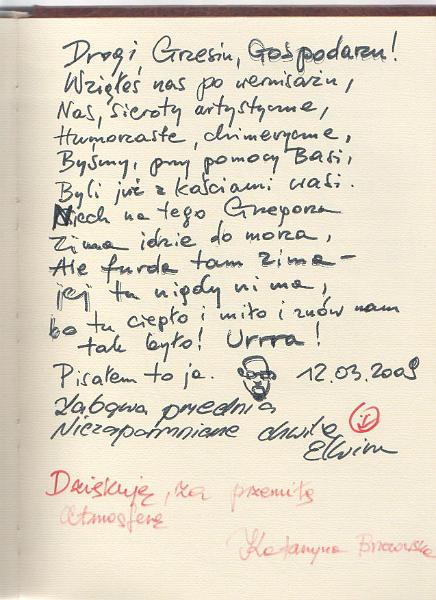 Drogi Grzesiu, Gospodarzu!
Wziąłeś nas po wernisażu,
Nas, sieroty artystyczne,
Humorzaste, chimeryczne,
Byśmy, przy pomocy Basi,
Byli już z kościami wasi.
Niech na tego Grzegorza
Zima idzie do morza,
Ale furda tam zima –
jej tu nigdy ni ma,
bo tu ciepło i miło i znów nam
tak było! Urrra!
Pisałem to ja. 12.03.2009
Zabawa przednia
Niezapomniane chwile
Elwira
Dziękuję, za przemiłą
atmosferę
Katarzyna